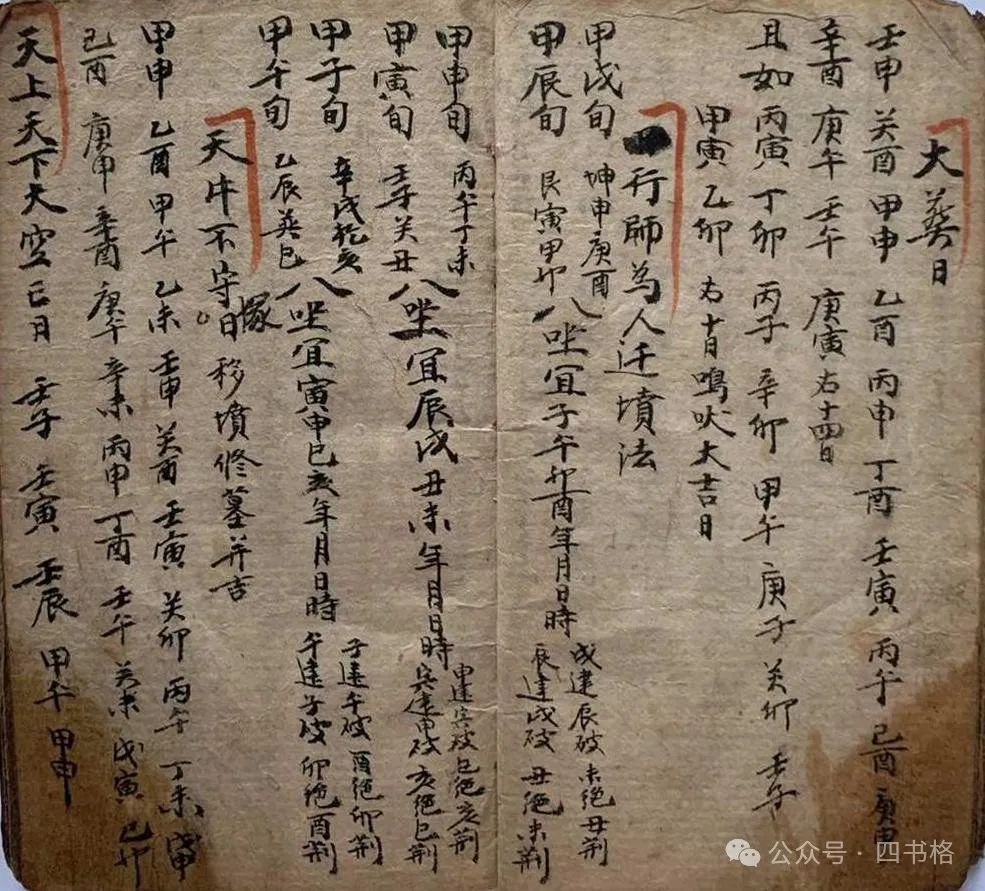 大葬日
壬申 癸酉 甲申 乙酉 丙申 丁酉 壬寅 丙午 己酉 庚申
辛酉 庚午 壬午 庚寅 右十四日
且如丙寅 丁卯 丙子 辛卯 甲午 庚子 癸卯 壬子
甲寅 乙卯 右十日鳴吠大吉日
行師為人迁墳法
甲戌旬 坤申庚酉
甲辰旬 艮寅甲卯
八坐宜子午卯酉年月日時
戌建辰破 未絕丑荆
辰建戌破 丑絕未荆
甲申旬 丙午丁未
甲寅旬 壬子癸丑
八坐宜辰戌丑未年月日時
申建寅破 巳絕亥荆
寅建申破 亥絕巳荆
甲子旬 辛戌乾亥
甲午旬 乙辰巽巳
八坐宜寅申巳亥年月日時
子建午破 酉絕卯荆
午建子破 卯絕酉荆
天牛不守塚日 移墳修墓并吉
甲申 乙酉 甲午 乙未 壬申 癸酉 壬寅 癸卯 丙午 丁未 戊申
己酉 庚申 辛酉 庚午 辛未 丙申 丁酉 壬午 癸未 戊寅 己卯
天上天下大空亡日 壬子 壬寅 壬辰 甲午 甲申
公众号·四书格